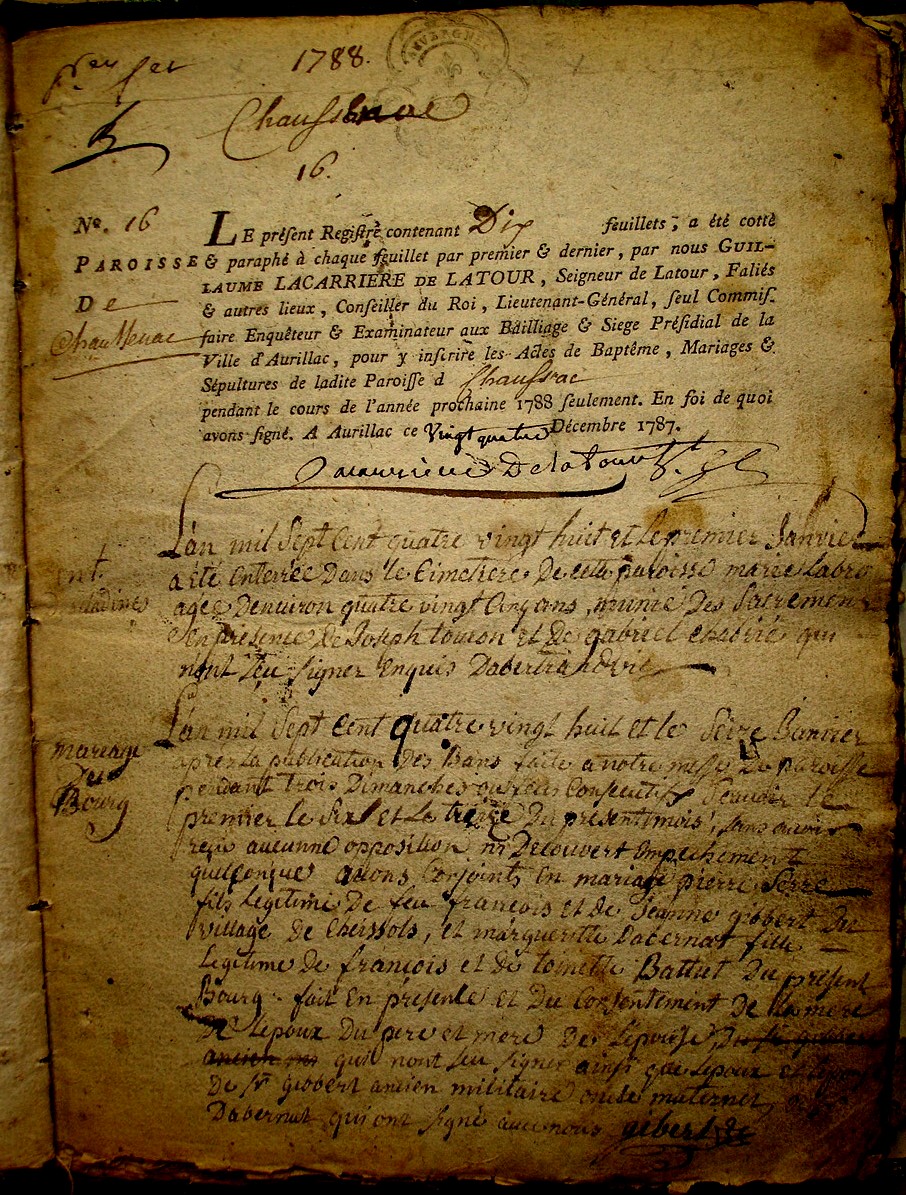 1788.
AUVERGNE
Chaussenac
16.
No. 16
PAROISSE
De
Chaussenac
LE présent Registre contenant Dix feuillets, a été cotté
& paraphé à chaque feuillet par premier & dernier, par nous GUIL-
LAUME LACARRIERE DE LATOUR, Seigneur de Latour, Faliés
& autres lieux, Conseiller du Roi, Lieutenant-Général, seul Commis-
saire Enquêteur & Examinateur aux Bailliage & Siege Présidial de la
Ville d'Aurillac, pour y inscrire les Actes de Baptême, Mariages &
Sépultures de ladite Paroisse d Chaussnac
pendant le cours de l'année prochaine 1788 seulement. En foi de quoi
avons signé. A Aurillac ce vingt quatre Décembre 1787.
Lacarriere Delatour
Lan mil Sept Cent quatre vingt huit et le premier Janvier
a été Enterrée Dans le Cimetiere De cette paroisse marie Labro
agée Denviron quatre vingt Cinq ans, munie Des Sacremens
en présence de Joseph touron et de gabriel chabrié qui
nont sçu signer Enquis
Lan mil Sept Cent quatre vingt huit et le Janvier
mareage
Du
Bourg
apres la publication Des Bans faite a notre messe De paroisse
pendant trois Dimanches ou fetes Consecutifs Scavoir le
premier le Six et le treize Du present mois, sans avoir
reçu aucunne opposition ni Decouvert Empechement
quelconque avons Conjoints En mariage pierre Serre
fils Legitime De feu francois et de Jeanne gibbert Du
village de Cheissols, et margueritte Dabernat fille
Legitime de francois et de toinette Battut Du present
Bourg fait En presence et Du Consentement De la mere
De Lepoux Du pere et mere de Lepouse
qui nont sçu signer ainsi que Lepoux
De sr gibbert ancien militaire oncle maternel
Dabernat qui ont signé avec nous gibert